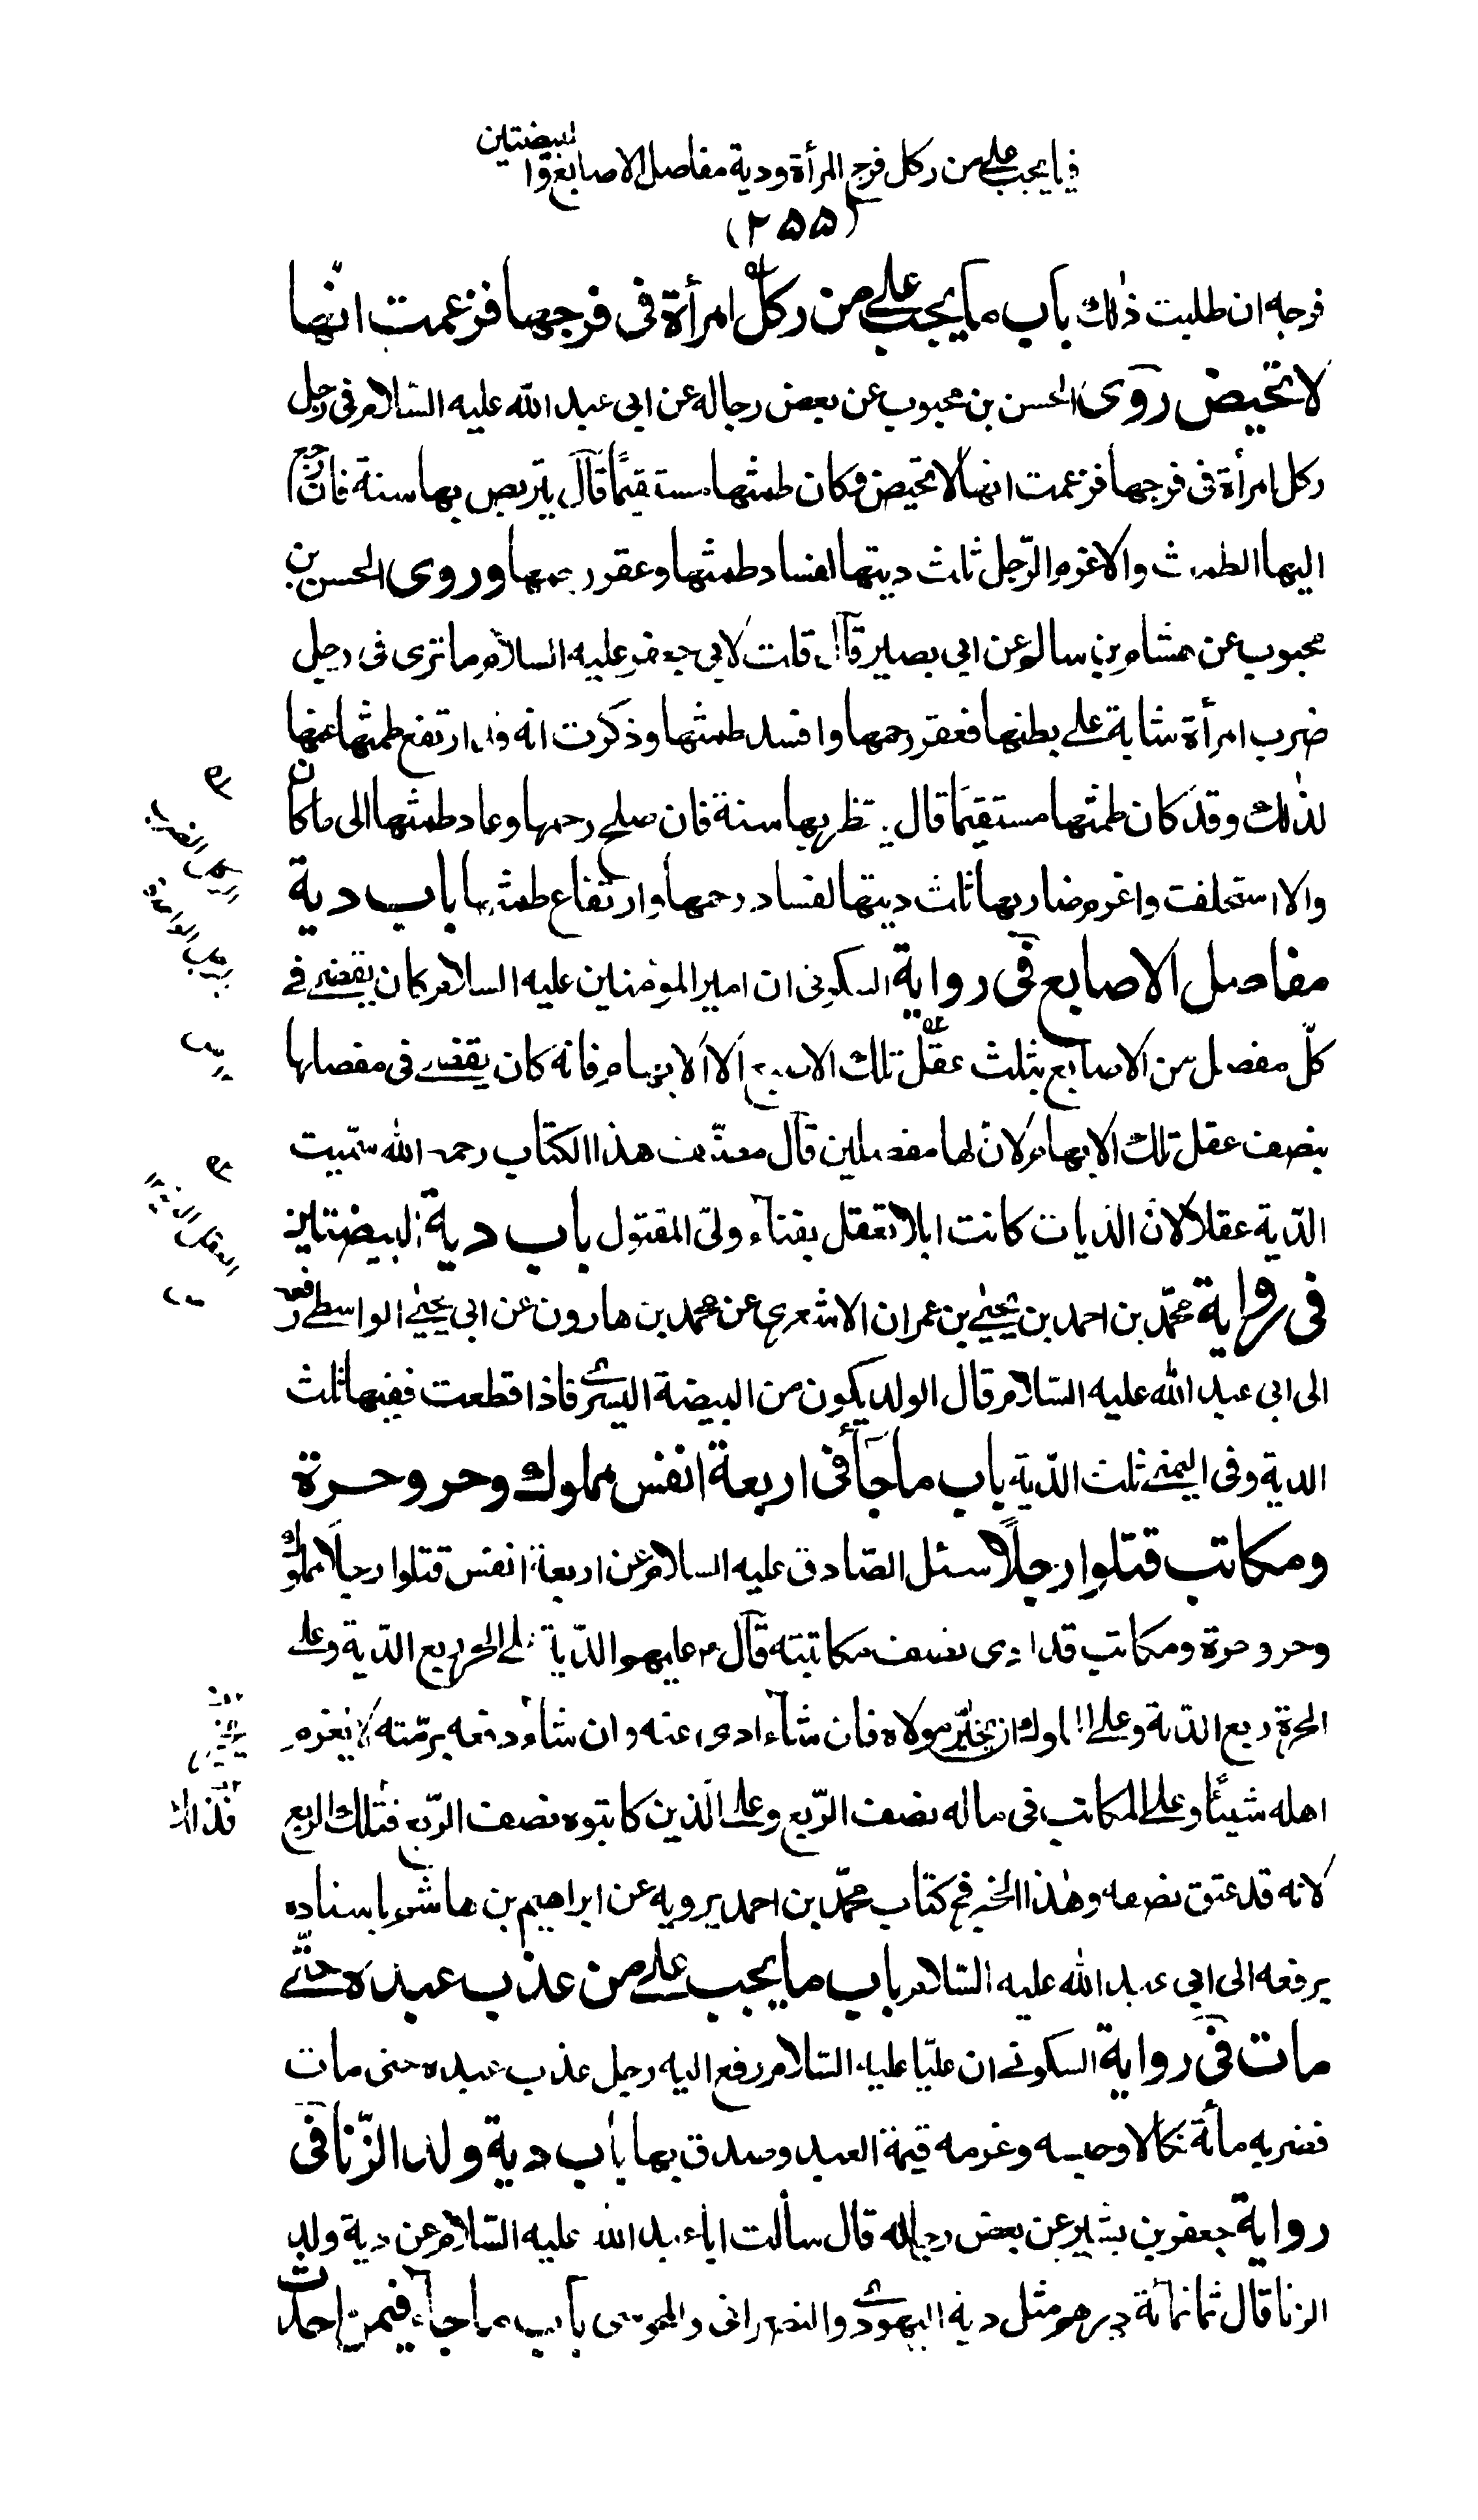 فيما يجب على من ركل فرج المرأة ودية مفاصل الاصابع والبيضتين
(٢٥٥)
فرجه ان طلبت ذلك باب ما يجب على من ركل امرأة فى فرجها فزعمت انّها
لا تحيض روى الحسن بن محبوب عن بعض رجاله عن ابى عبد الله عليه السّلام فى رجل
ركل امرأة فى فرجها فزعمت انها لا تحيض وكان طمثها مستقيمًا قال يتربص بها سنة فان رجع
اليها الطمث والا غرم الرّجل ثلث ديتها لفساد طمثها وعقر رحمها وروى الحسن بن
محبوب عن هشام بن سالم عن ابى بصير قال قلت لابى جعفر عليه السلام ما ترى فى رجل
ضرب امرأة شابة على بطنها فعقر رحمها وافسد طمثها وذكرت انه قد ارتفع طمثها عنها
لذلك وقد كان طمثها مستقيما قال ينتظر بها سنة فان صلح رحمها وعاد طمثها الى ما كان
والا استحلفت واغرم ضاربها ثلث ديتها لفساد رحمها وارتفاع طمثها باب دية
مفاصل الاصابع فى رواية السكونى ان امير المؤمنين عليه السلام كان يقضى فى
كلّ مفصل من الاصابع بثلث عقل تلك الاصبع الا الابهام فانه كان يقضى فى مفصلها
بنصف عقل تلك الابهام لان لها مفصلين قال مصنّف هذا الكتاب رحمه الله سمّيت
الدّية عقلا لانّ الديات كانت ابلا تعقل بفناء ولىّ المقتول باب دية البيضتين
فى رواية محمّد بن احمد بن يحيى بن عمران الاشعرى عن محمد بن هارون عن ابى يحيى الواسطى رفعه
الى ابى عبد الله عليه السّلام قال الولد يكون من البيضة اليسرى فاذا قطعت ففيها ثلثا
الدية وفى اليمنى ثلث الدّية باب ما جاء فى اربعة انفس مملوك وحر وحرة
ومكاتب قتلوا رجلًا سئل الصّادق عليه السلام عن اربعة انفس قتلوا رجلا مملوك
وحر وحرة ومكاتب قد ادى نصف مكاتبته قال عليهم الدّية على الحر ربع الدّية وعلى
الحرة ربع الدّية وعلى المملوك ان يخيّر مولاه فان شاء ادى عنه وان شاء دفعه برمّته لا يغرم
اهله شيئًا وعلى المكاتب فى ماله نصف الرّبع وعلى الّذين كاتبوه نصف الرّبع فذلك الربع
لانه قد عتق نصفه وهذا الخبر فى كتاب محمّد بن احمد يرويه عن ابراهيم بن هاشم باسناده
يرفعه الى ابى عبد الله عليه السّلام باب ما يجب على من عذب عبده حتّى
مات فى رواية السكونى ان عليّا عليه السّلام رفع اليه رجل عذب عبده حتى مات
فضربه مأة نكالا وحبسه وغرمه قيمة العبد وصدق بها باب دية ولد الزّنا فى
رواية جعفر بن بشير عن بعض رجاله قال سألت ابا عبد الله عليه السّلام عن دية ولد
الزنا قال ثمانمائة درهم مثل دية اليهودى والنصرانى والمجوسى باب ما جاء فيمن احدث
فذلك